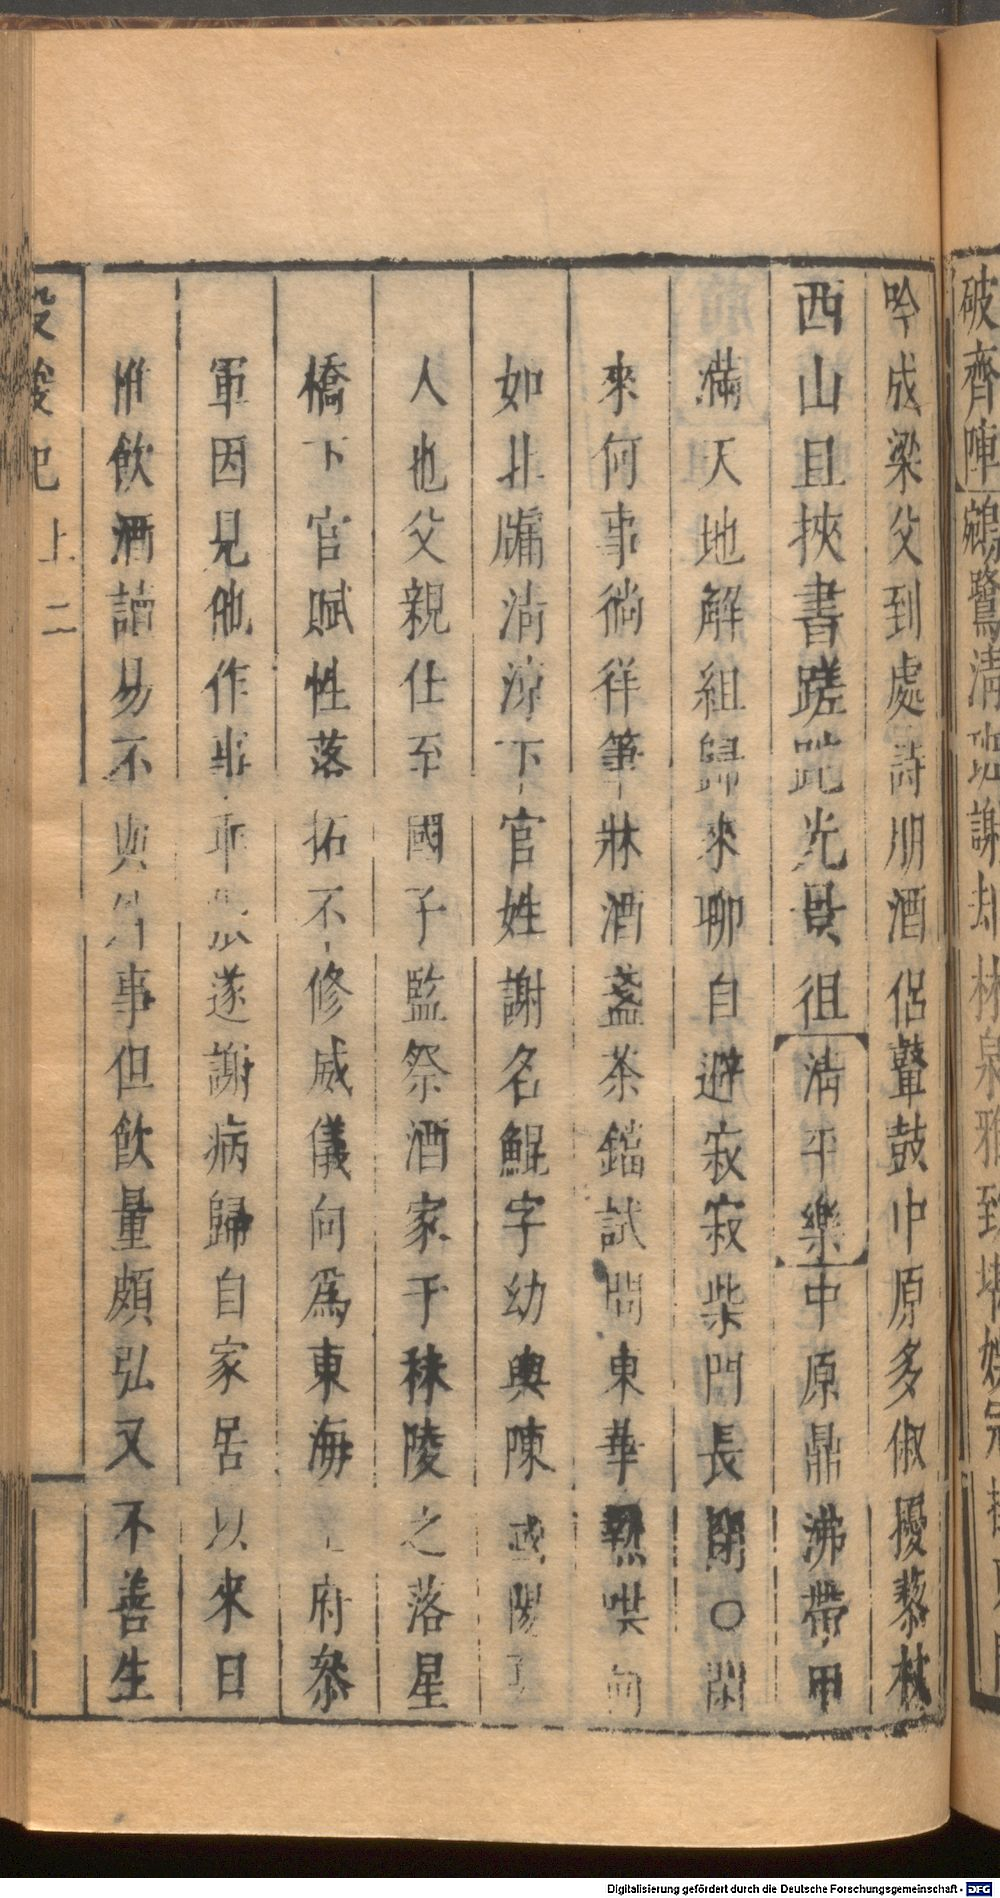 破齊陣 鵷鷺清班謝却林泉雅到堪
吟成梁父到處詩朋酒侶鼙鼓中原多俶擾藜杖
西山且挾書蹉跎光景徂 清平樂 中原鼎沸帶甲
滿天地解組歸來聊自避寂寂柴門長閉〇閑
來何事徜徉筆牀酒盞茶鐺試問東華熱哄何
如北牖清涼下官姓謝名鯤字幼輿陳國陽
人也父親仕至國子監祭酒家于秣陵之落星
橋下官賦性落拓不修威儀向爲東海 府叅
軍因見他作事乖張遂謝病歸自家居以來日
惟飲酒讀易不與外事但飲量頗弘又不善生
投梭記 上 二
Digitalisierung gefördert durch die Deutsche Forschungsgemeinschaft - DFG